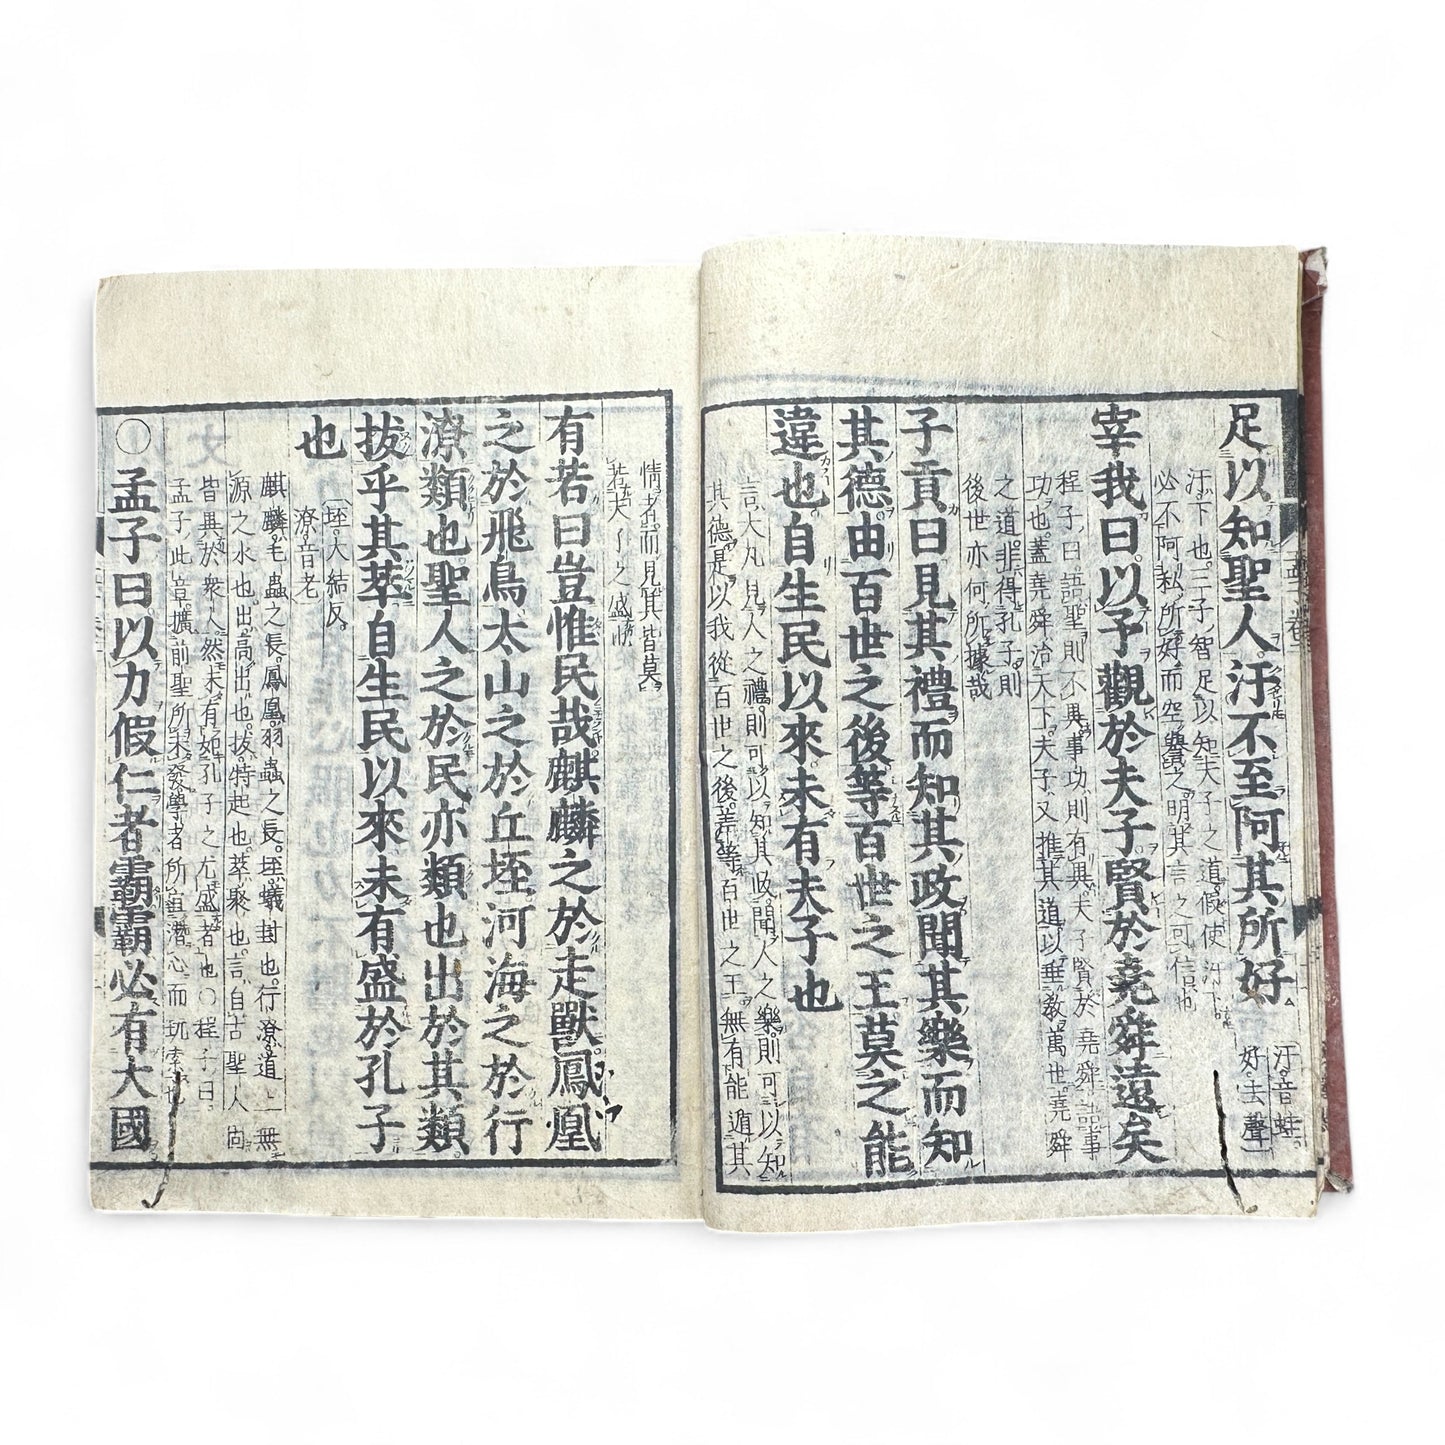 足以知聖人汙不至阿其所好
汙音蛙
好去聲
汙下也三子智足以知夫子之道假使汙下
必不阿私所好而空譽之明其言之可信也
宰我曰以予觀於夫子賢於堯舜遠矣
程子曰語聖則不異事功則有異夫子賢於堯舜語事
功也蓋堯舜治天下夫子又推其道以垂教萬世堯舜
之道非得孔子則
後世亦何所據哉
子貢曰見其禮而知其政聞其樂而知
其德由百世之後等百世之王莫之能
違也自生民以來未有夫子也
言大凡見人之禮則可以知其政聞人之樂則可以知
其德是以我從百世之後差等百世之王無有能遁其
情者而見其皆莫
若夫子之盛也
有若曰豈惟民哉麒麟之於走獸鳳凰
之於飛鳥太山之於丘垤河海之於行
潦類也聖人之於民亦類也出於其類
拔乎其萃自生民以來未有盛於孔子
也
垤大結反
潦音老
麒麟毛蟲之長鳳凰羽蟲之長垤蟻封也行潦道上無
源之水也出高出也拔特起也萃聚也言自古聖人固
皆異於衆人然未有如孔子之尤盛者也○程子曰
孟子此章擴前聖所未發學者所宜潛心而玩索也
孟子曰以力假仁者霸霸必有大國